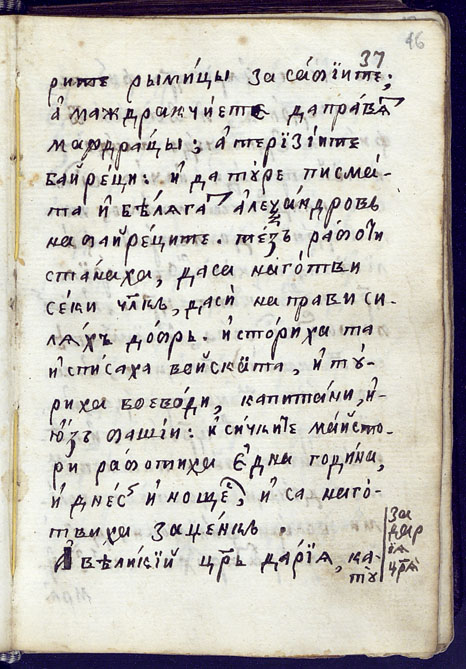 37
46
рите рыми́цы за са́бїите;
а҆ маждракчи́ете да пра́вят
маждра́цы; а҆ терїзі́ите
байре́ци: и҆ да ту́ре писма́-
та и҆ бѣ́ляга а҆леѯа́ндровъ
на байре́ците. те́зъ ра́боти
ста́наха, да са наго́тви
се́ки чл҃къ, да сѝ направи си-
ля́хъ до́бръ. и҆ сто́риха та
и҆ спи́саха войска́та, и҆ ту́-
риха воево́ди, капита́ни, и҆-
ю҆́зъ башїи: и҆ си́чките ма́йсто-
ри ра́ботиха є҆дна годи́на,
и҆ дне́съ и҆ но́ще, и҆ са наго́-
твиха за це́нкъ.
А҆ вели́кїй цр҃ь да́рїя, ка-
то
за
дар
їя
цр҃я